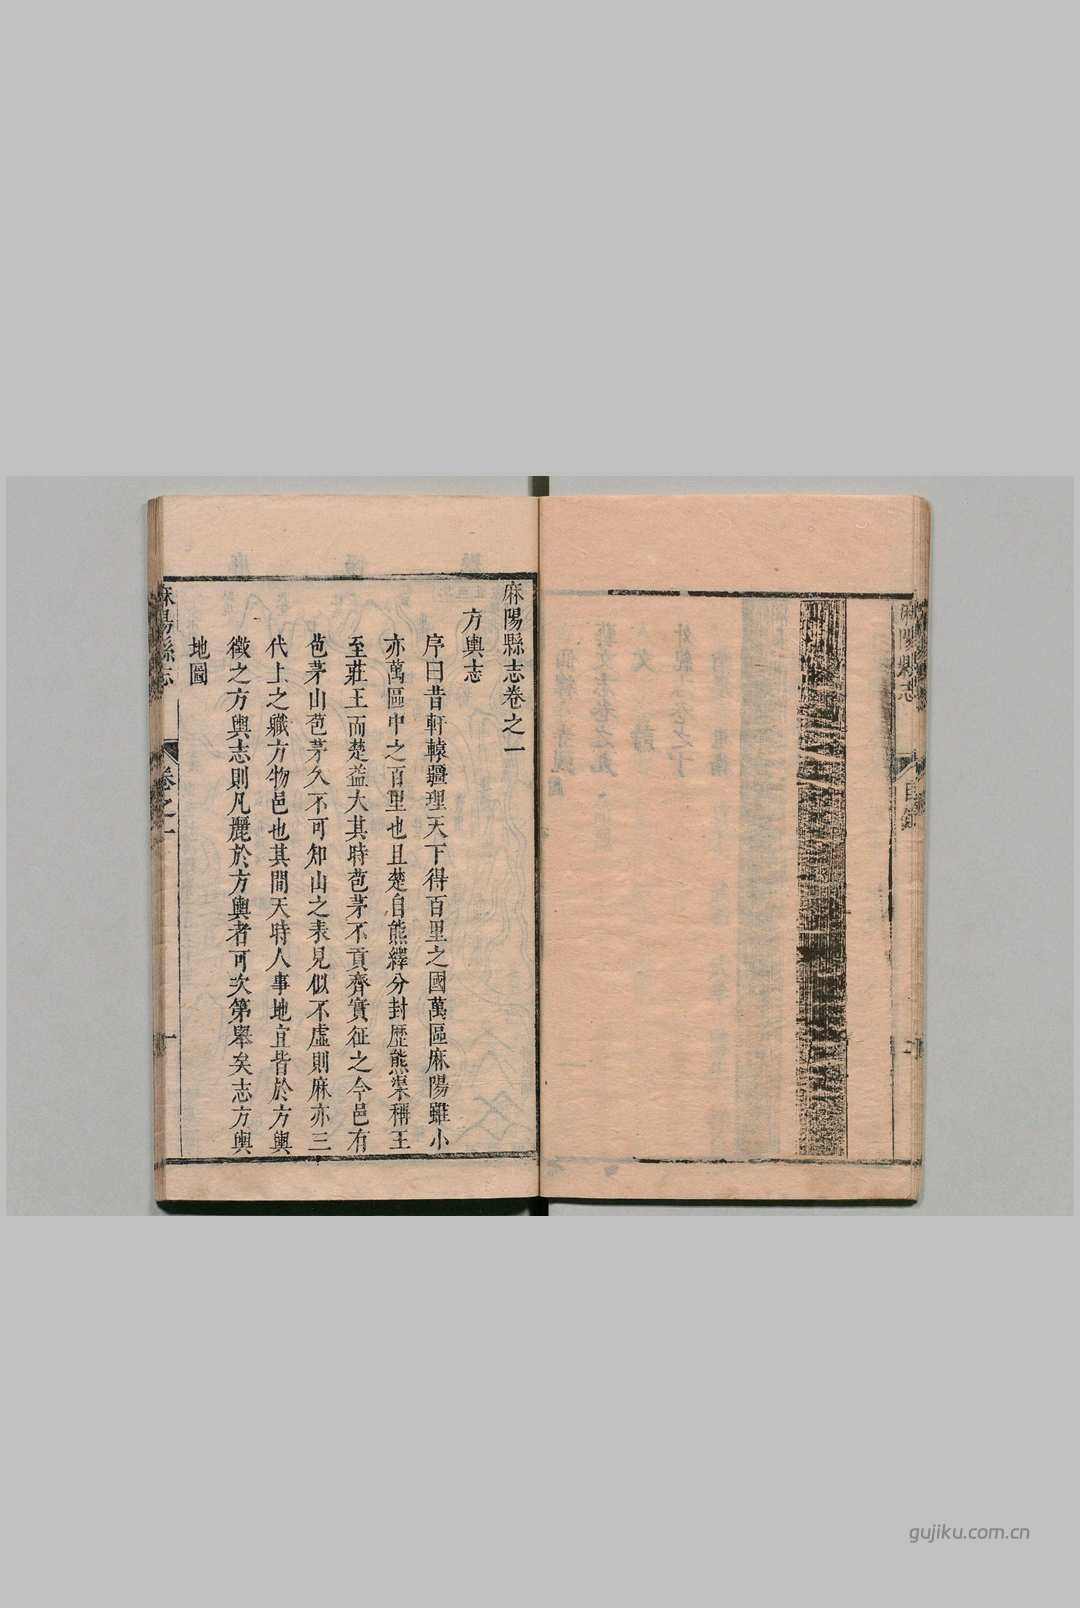 麻陽縣志
目錄
二
麻陽縣志卷之一
方輿志
序曰昔軒轅疆理天下得百里之國萬區麻陽雖小
亦萬區中之百里也且楚自熊繹分封歷熊渠稱王
至莊王而楚益大其時苞茅不貢齊實征之今邑有
苞茅山苞茅久不可知山之表見似不虛則麻亦三
代上之職方物邑也其間天時人事地宜皆於方輿
徵之方輿志則凡麗於方輿者可次第舉矣志方輿
地圖
麻陽縣志
卷之一
一
gujiku.com.cn